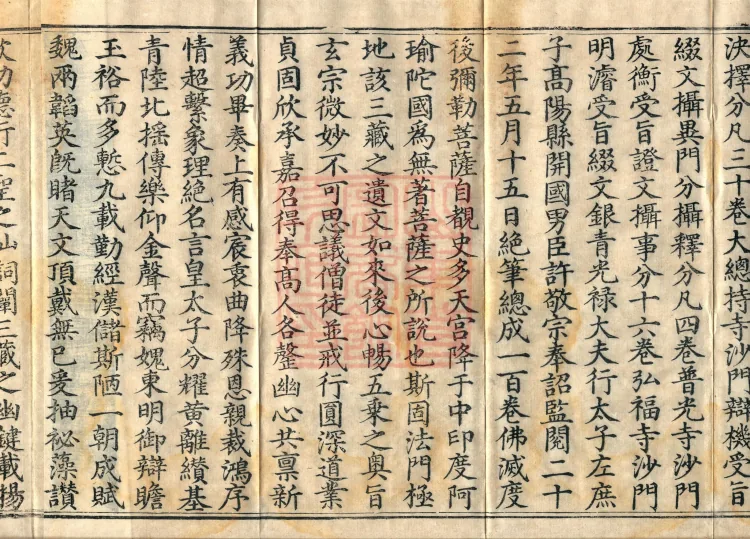 決擇分凡三十卷大總持寺沙門辯機受旨
綴文攝異門分攝釋分凡四卷普光寺沙門
處衡受旨證文攝事分十六卷弘福寺沙門
明濬受旨綴文銀青光禄大夫行太子左庶
子髙陽縣開國男臣許敬宗奉詔監閱二十
二年五月十五日絶筆總成一百卷佛滅度
後彌勒菩薩自覩史多天宫降于中印度阿
瑜陀國爲無著菩薩之所說也斯固法門極
地該三藏之遺文如來後心暢五乗之奥旨
玄宗微妙不可思議僧徒並戒行圓深道業
貞固欣承嘉召得奉髙人各罄幽心共禀新
義功畢奏上有感宸衷曲降殊恩親裁鴻序
情超繫象理絶名言皇太子分耀黄離纉基
青陸北摇傳樂仰金聲而竊媿東明御辯瞻
玉裕而多慙九載勤經漢儲斯陋一朝成賦
魏兩韜英旣睹天文頂戴無已爰抽祕藻讃
歎功德行二聖之山詞闡三藏之幽鍵載揚